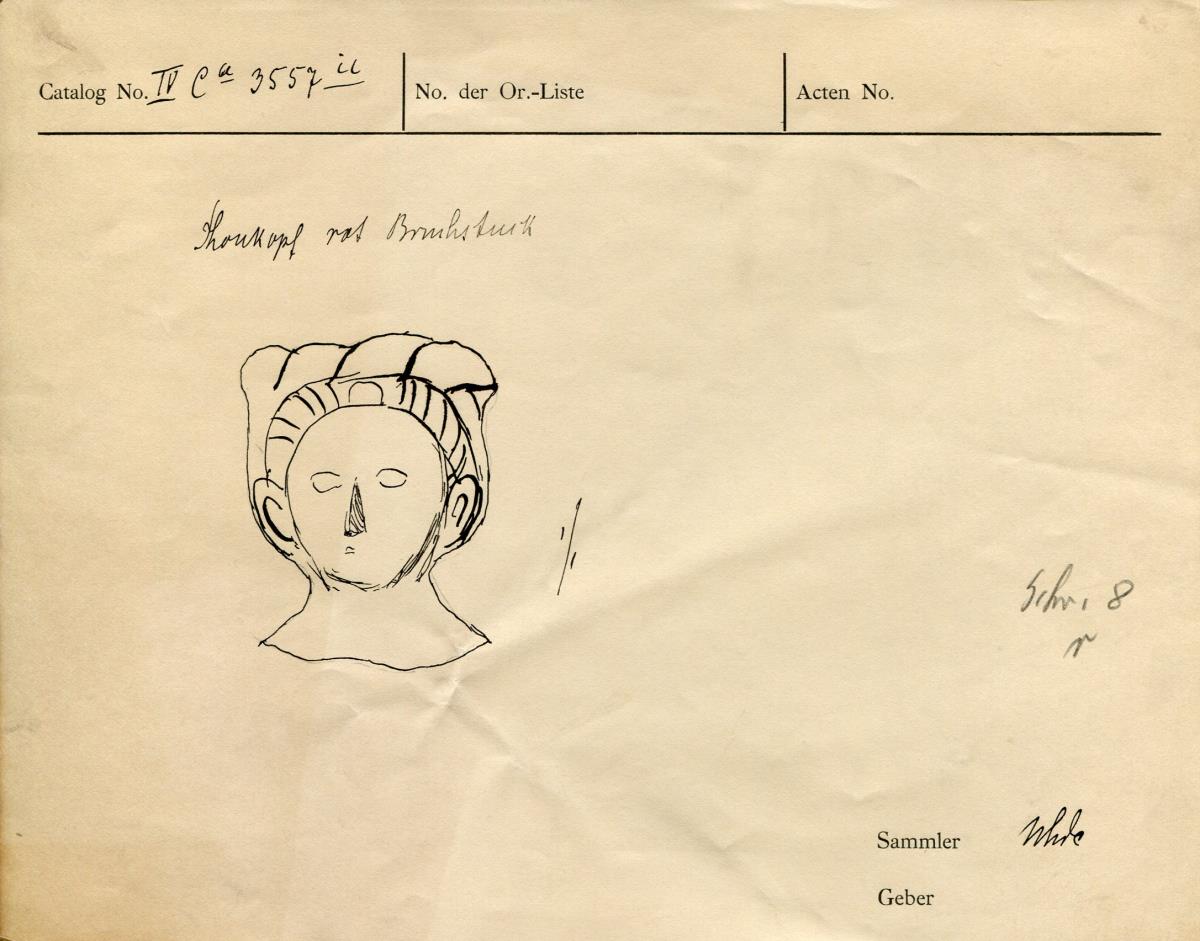 Catalog No. IV Ca 3557
No. der Or.-Liste
Acten No.
Thonkopf rot Bruchstück
1/1
Schr. 8
r
Sammler Uhde
Geber